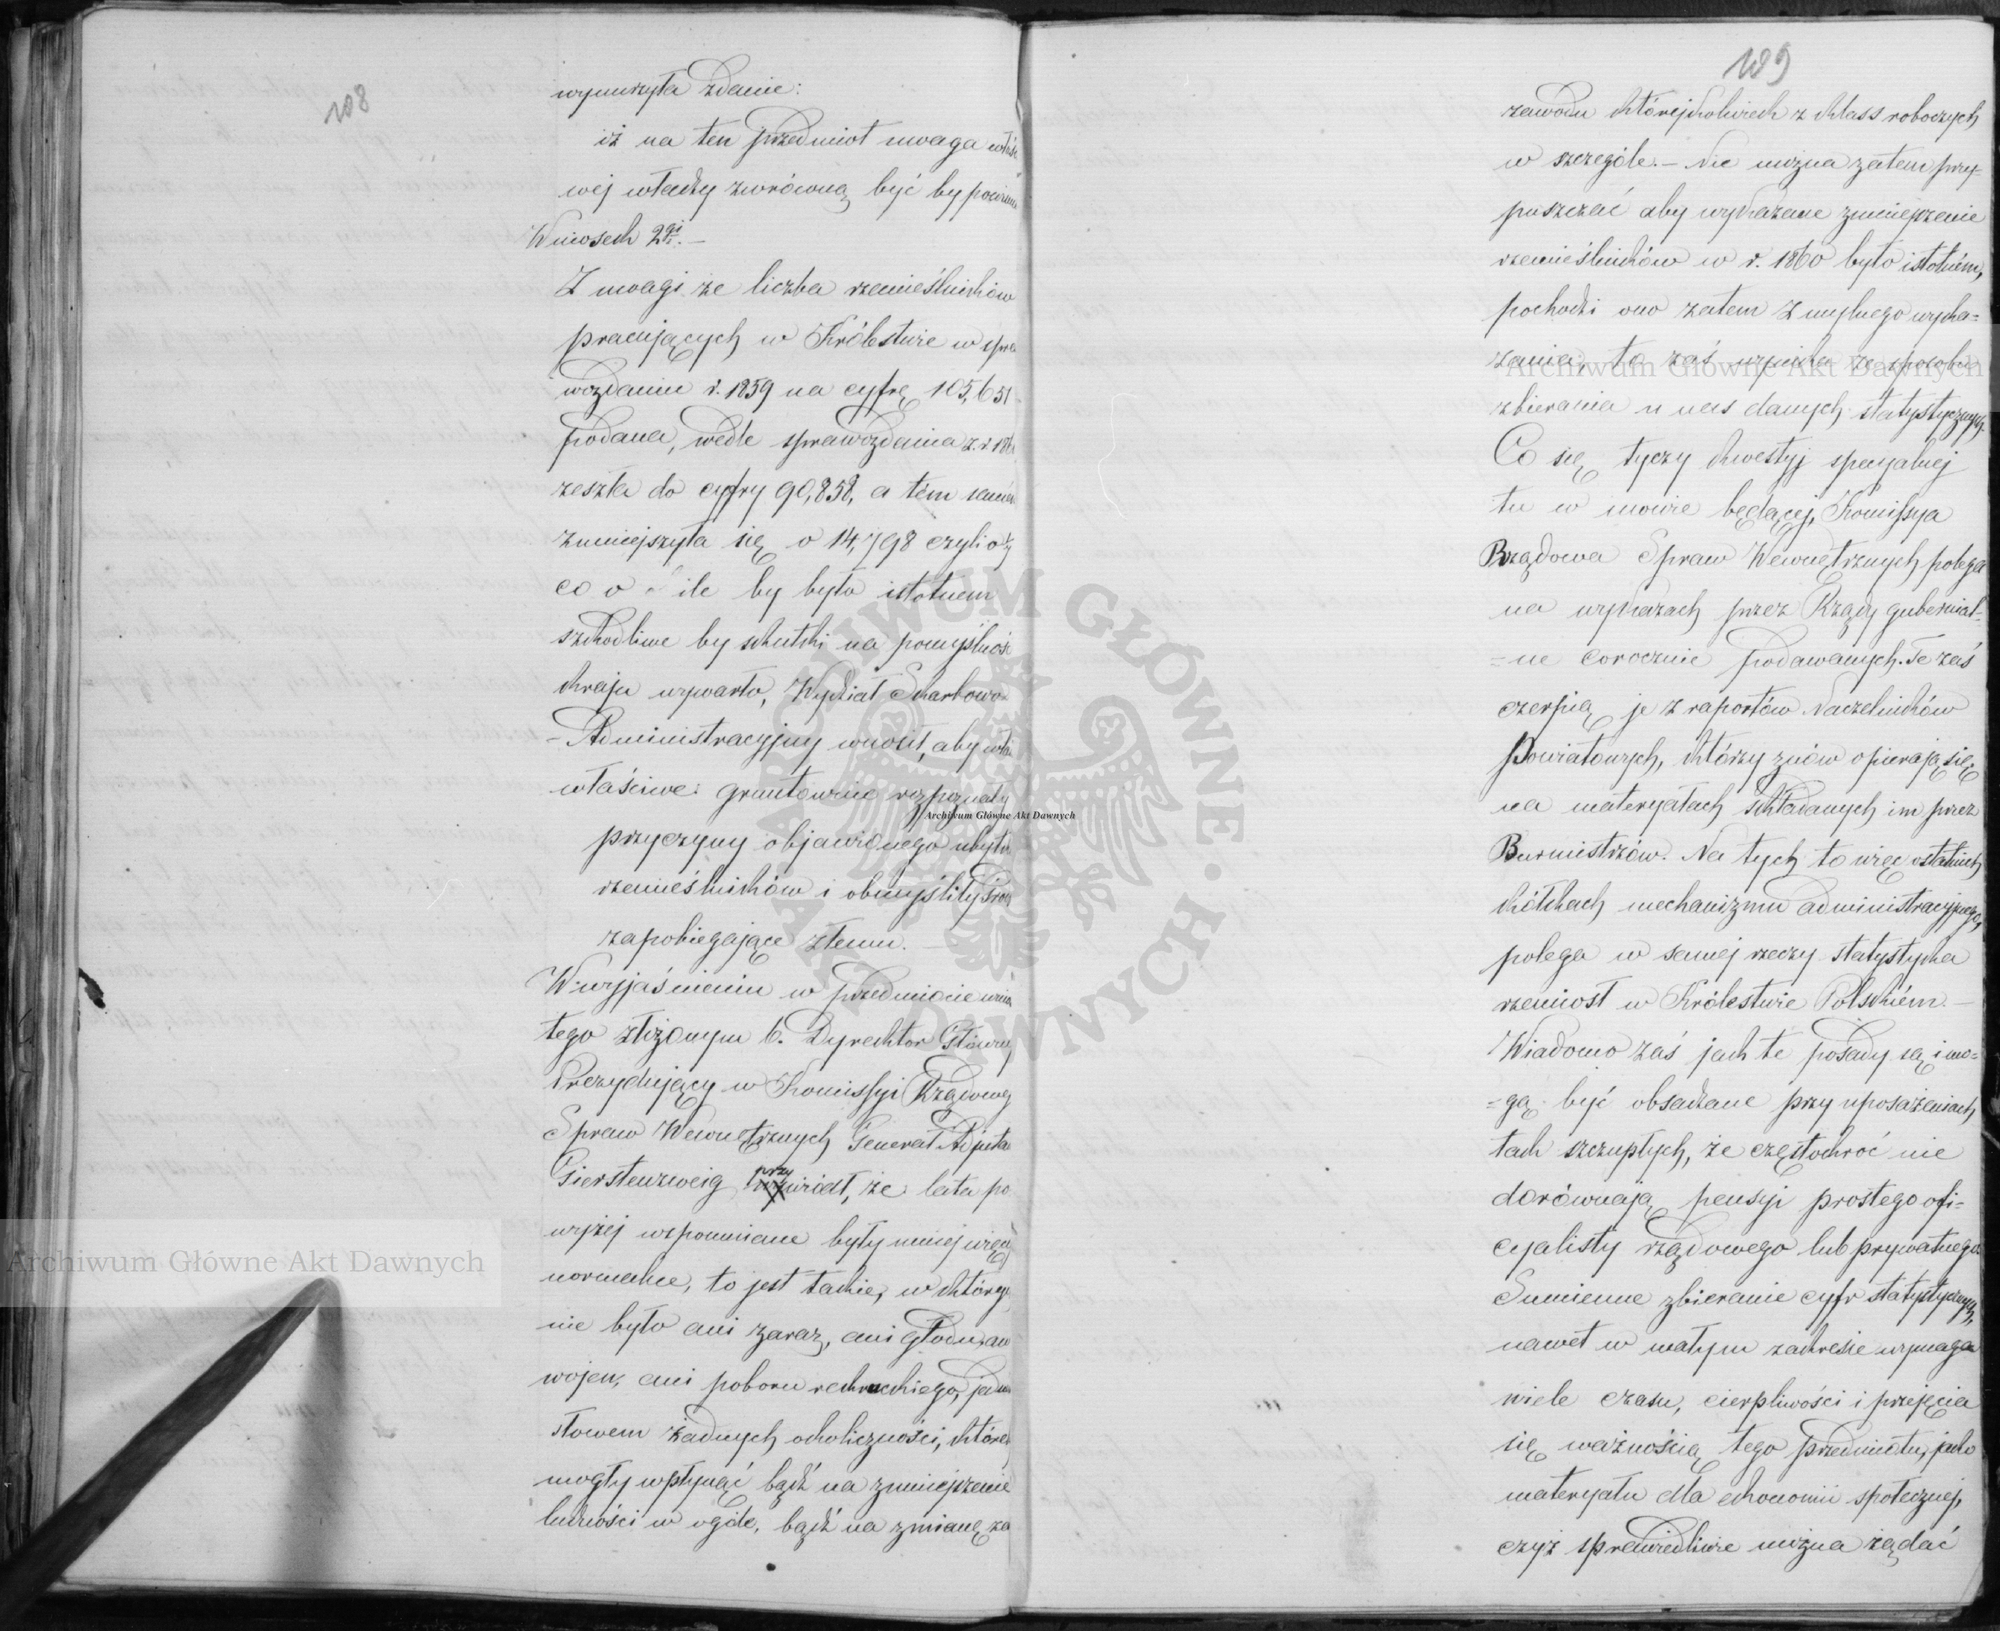 108
wynurzyła zdanie:
iż na ten przedmiot uwaga właści
wej władzy zwróconą być by powinna
Wniosek 2gi.—
Z uwagi że liczba rzemieślników
pracujących w Królestwie w spra
wozdaniu r. 1859 na cyfrę 105,651
podana, wedle sprawozdania z r. 186
zeszła do cyfry 90,858, a tém samém
zmniejszyła się o 14,798 czyli o
co o ile by było istotnem
szkodliwe by skutki na pomyślność
kraju wywarło, Wydział Skarbowo
-Administracyjny wnosił, aby wła
właściwe: gruntownie rozpoznały
przyczyny objawionego ubytku
rzemieślników i obmyśliły środ
zapobiegające złemu.—
W wyjaśnieniu w przedmiocie wnio
tego złożonym b. Dyrektor Główny
Prezydujący w Komissyi Rządowej
Spraw Wewnętrznych Generał Adjuta
Gierstenzweig przywiódł, że lata po
wyżej wspomniane były mniej więcej
normalne, to jest takie, w których
nie było ani zaraz, ani głodu, ani
wojen, ani poboru rekruckiego, jedn
słowem żadnych okoliczności, które
mogły wpłynąć bądź na zmniejszenie
ludności w ogóle, bądź na zmianę za
109
zawodu którejkolwiek z klass roboczych
w szczególe.— Nie można zatem przy-
puszczać aby wykazane zmniejszenie
rzemieślników w r. 1860 było istotném,
pochodzi ono zatem z mylnego wyka-
zania, to zaś wynika ze sposobu
zbierania u nas danych statystycznych.
Co się tyczy kwestyj specyalnej
tu w mowie będącej, Komissya
Rządowa Spraw Wewnętrznych polega
na wykazach przez Rządy gubernial-
-ne corocznie podawanych. Te zaś
czerpią je z raportów Naczelników
Powiatowych, którzy znów opierają się
na materyałach składanych im przez
Burmistrzów. Na tych to więc ostatnich
kółkach mechanizmu administracyjnego,
polega w samej rzeczy statystyka
rzemiosł w Królestwie Polskiém.—
Wiadomo zaś jak te posady są i mo-
-gą być obsadzane przy uposażeniach
tak szczupłych, że częstokroć nie
dorównają pensyi prostego ofi-
cyalisty rządowego lub prywatnego
Sumienne zbieranie cyfr statystycznych,
nawet w małym zakresie wymaga
wiele czasu, cierpliwości i przejęcia
się ważnością tego przedmiotu, jako
materyału dla ekonomii społecznej,
czyż sprawiedliwie można żądać
Archiwum Główne Akt Dawnych
Archiwum Główne Akt Dawnych
Archiwum Główne Akt Dawnych
ARCHIWUM GŁÓWNE AKT DAWNYCH